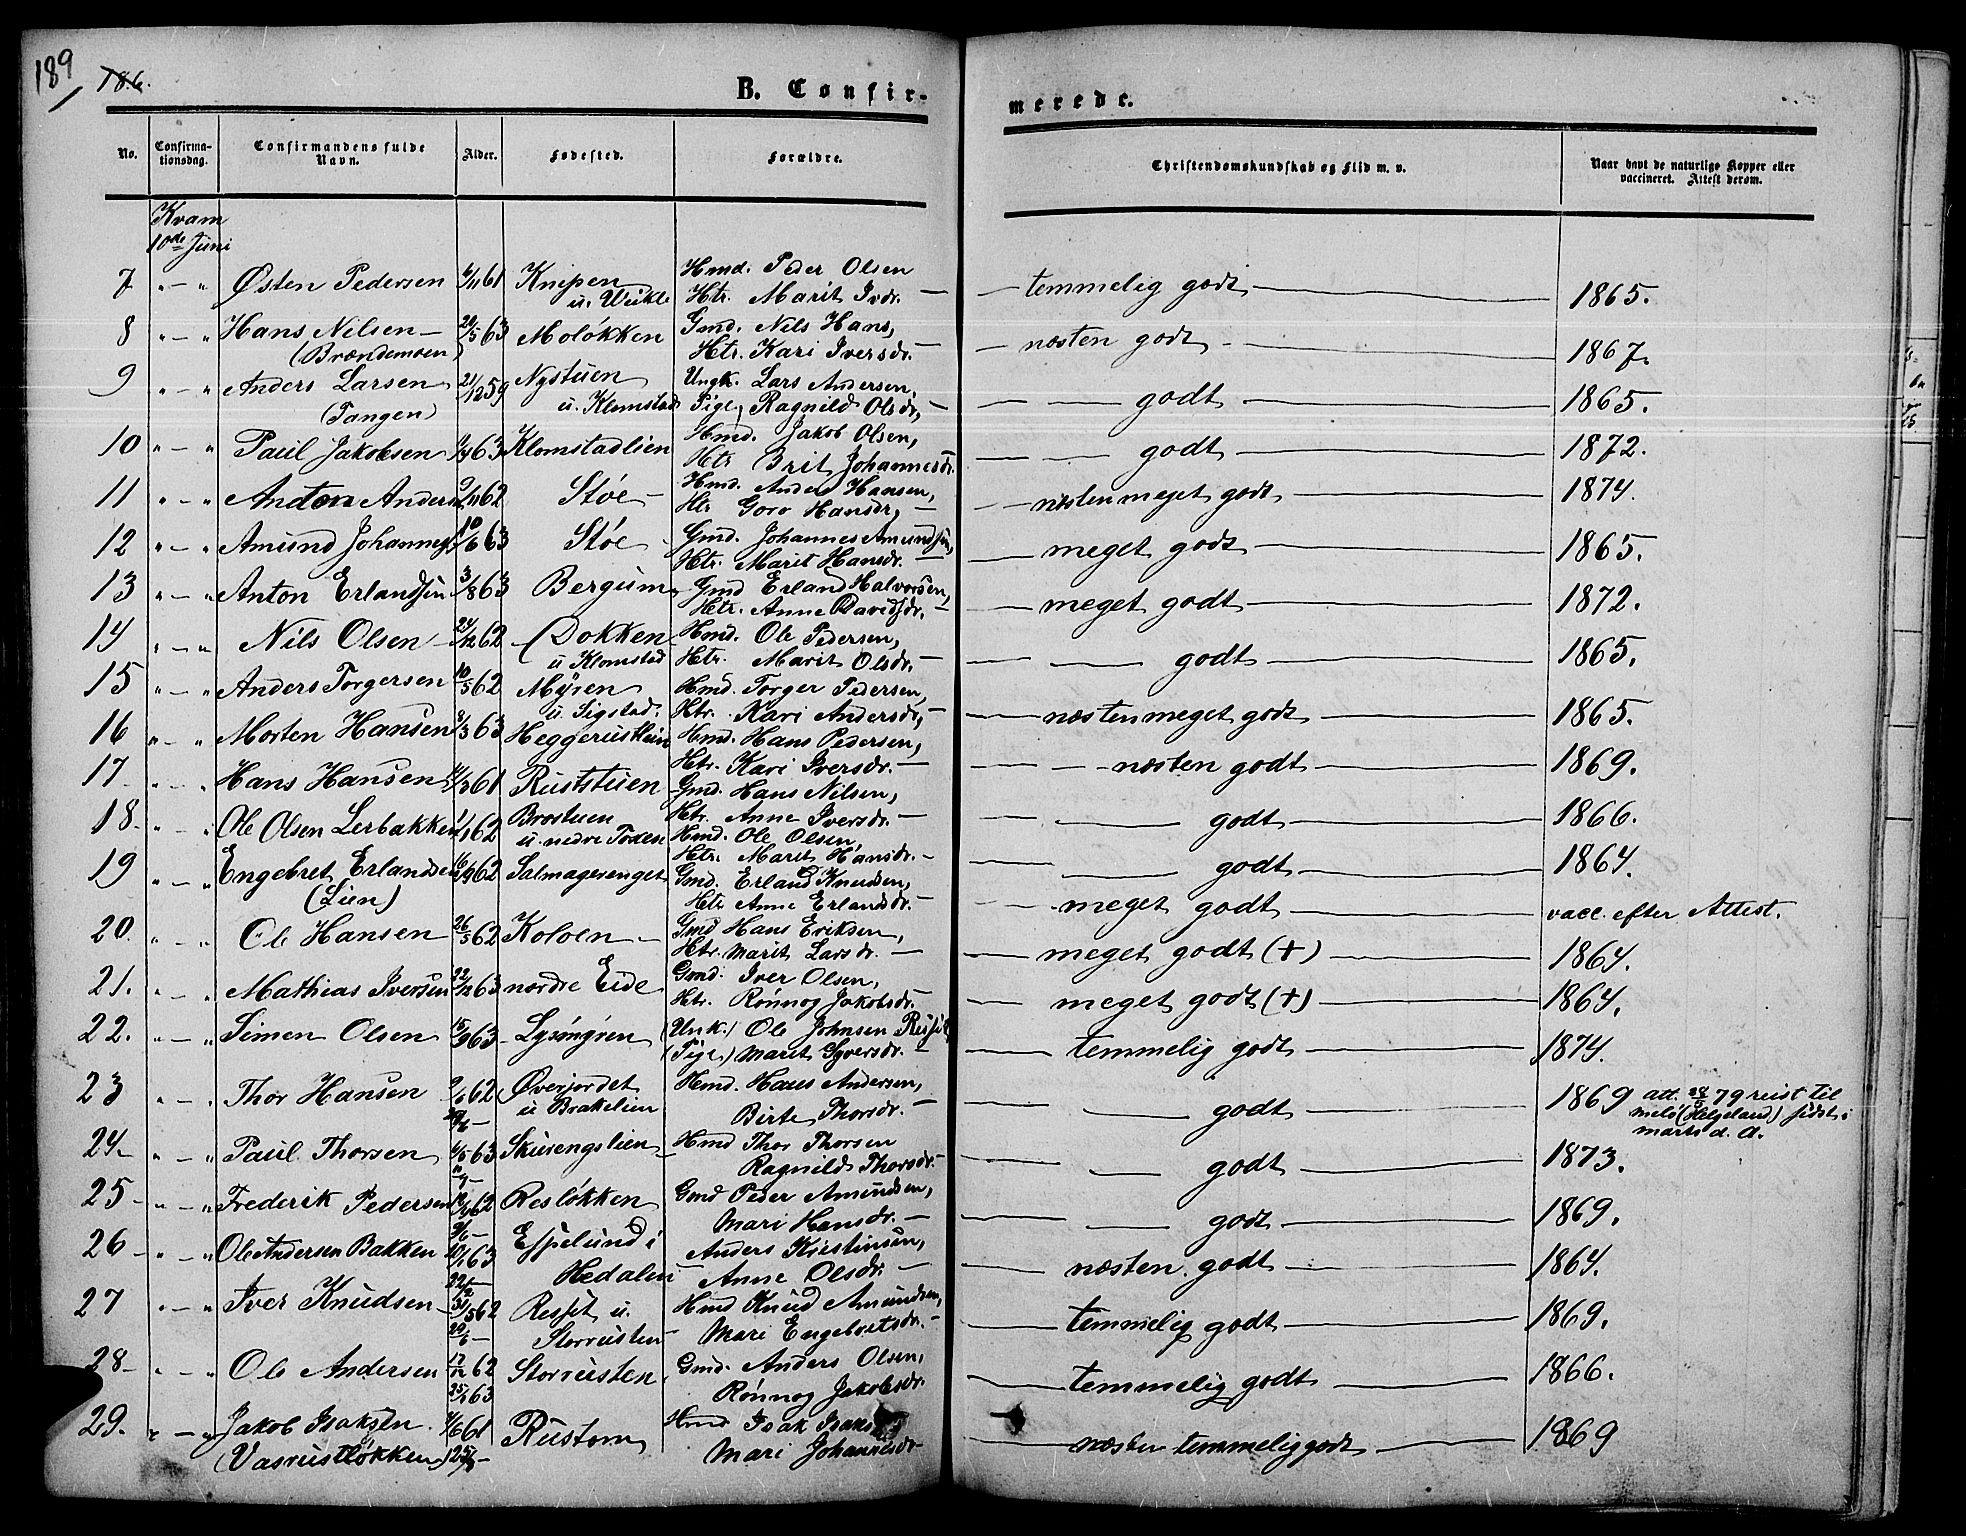 189
186.
B. Confir-
merede.
No.
Confirma-
tionsdag.
Confirmandens fulde
Navn.
Alder.
Fødested.
Forældre.
Christendomskundskab og Flid m. v.
Naar havt de naturlige Kopper eller
vaccineret. Attest derom.
Kvam
10de Juni
7 " — " Østen Pedersen 61 Knipen u. Veikle Hmd. Peder Olsen Htr. Marit Ivdr. — temmelig godt — 1865.
8 " — " Hans Nilsen (Brændemoen) 20/5 63 Moløkken Gmd. Nils Hans, Htr. Kari Iversdr. — næsten godt — 1867.
9 " — " Anders Larsen (Tangen) 21/12 59 Nystuen u. Klomstad Ungk. Lars Andersen, Pige, Ragnild Olsdr, — godt — 1865.
10 " — " Paul Jakobsen 63 Klomstadlien Hmd. Jakob Olsen, Htr Brit Johannesdr. — godt — 1872.
11 " — " Anton Anders 62 Støe Hmd. Anders Hansen, Htr Goro Hansdr, — næsten meget godt — 1874.
12 " — " Amund Johannes 10/6 63 Støe Gmd. Johannes Amundsen, Htr. Marit Hansdr. — meget godt — 1865.
13 " — " Anton Erlandsen 3/8 63 Bergum Gmd Erland Halvorsen, Htr. Anne Davidsdr. — meget godt — 1872.
14 " — " Nils Olsen 24/12 62 Dokken u Klomstad Hmd. Ole Pedersen, Htr. Marit Olsdr. — godt — 1865.
15 " — " Anders Torgersen 10/5 62 Myren u. Sigstad. Hmd. Torger Pedersen, Htr. Kari Andersdr, — næsten meget godt — 1865.
16 " — " Morten Hansen 63 Heggerustlien Hmd. Hans Pedersen, Htr. Kari Iversdr. — næsten godt — 1869.
17 " — " Hans Hansen 61 Ruststuen Gmd. Hans Nilsen, Htr. Anne Iversdr. — godt — 1866.
18 " — " Ole Olsen Lerbakken 62 Brostuen u. nedre Hmd. Ole Olsen, Htr. Marit Hansdr. — godt — 1864.
19 " — " Engebret Erlandsen (Lien) 16/9 62 Salmagerenget Gmd. Erland Knudsen, Htr Anne Erlandsdr. — meget godt — vacc. efter Attest.
20. " — " Ole Hansen 26/5 62 Koloen Gmd Hans Eriksen, Htr. Marit Larsdr. — meget godt (+) — 1864.
21. " — " Mathias Iversen 22/12 63 nordre Eide Gmd. Iver Olsen, Htr. Rønnog Jakobsdr. — meget godt (+) — 1864.
22. " — " Simen Olsen 15/9 63 (Unk.) Ole Johnsen (Pige) Marit Syversdr. — temmelig godt — 1874.
23 " — " Thor Hansen 9/6 62 Øverjordet u Brakelien Hmd. Hans Andersen, Birte Thorsdr. — godt — 1869 att. 28/5 79 reist til
melø (Helgeland) sidst i
marts d. A.
24 " — " Paul Thorsen 63 Skurengslien Hmd Thor Thorsen Ragnild Thorsdr. — godt — 1873.
25 " — " Frederik Pedersen 62 Resløkken Gmd Peder Amundsen, Mari Hansdr. — godt — 1869.
26 " — " Ole Andersen Bakken 63 Espelund i Hedalen Anders Kristinsen, Anne Olsdr. — næsten godt — 1864.
27 " — " Iver Knudsen 31/5 62 u. Storrusten Hmd Knud Amundsen, Mari Engebretsdr. — temmelig godt — 1869.
28 " — " Ole Andersen 17/12 62 25/1 63 Storrusten Gmd. Anders Olsen, Rønnog Jakobsdr. — temmelig godt — 1866.
29. " — " Jakob Isaksen (Vasrustløkken) 61 Rustom Hmd Isak Mari Johannesdr — næsten temmelig godt — 1869